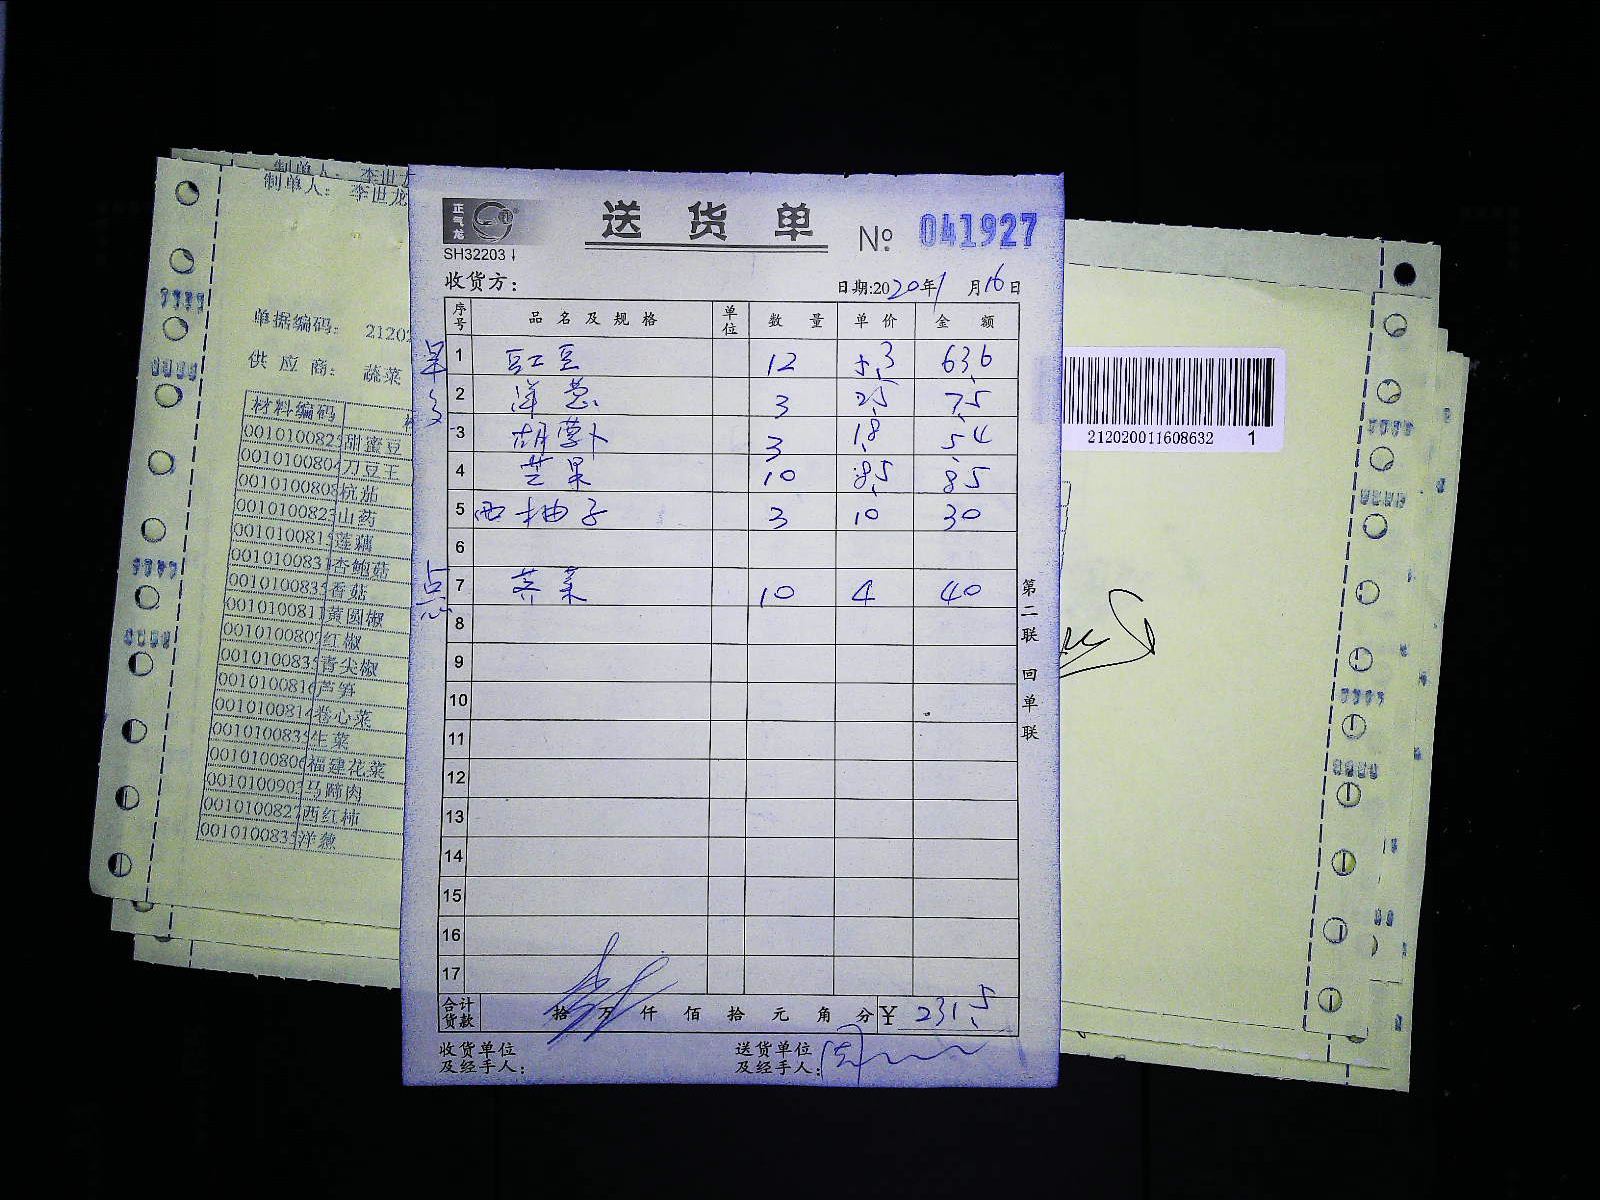 制单人: 李世龙
制单人: 李世龙
单据编码: 21202
供 应 商: 蔬菜
材料编码
001010082 甜蜜豆
0010100804 刀豆王
001010080 杭茄
001010082 山药
001010081 莲藕
001010083 杏鲍菇
001010083 香菇
001010081 黄圆椒
001010080 红椒
001010083 青尖椒
001010081 芦笋
001010081 卷心菜
001010083 生菜
001010080 福建花菜
001010090 马蹄肉
001010082 西红柿
001010083 洋葱
正气龙
送 货 单 Nº 041927
SH32203
收货方: 日期:2020年1月16日
序号 品 名 及 规 格 单位 数 量 单 价 金 额
1 豇豆 12 5.3 63.6
2 洋葱 3 2.5 7.5
3 胡萝卜 3 1.8 5.4
4 芒果 10 8.5 85
5 西柚子 3 10 30
6
点心 7 荠菜 10 4 40
8
9
10
11
12
13
14
15
16
17
合计货款 拾 万 仟 佰 拾 元 角 分 ¥ 231.5
收货单位及经手人: 送货单位及经手人: 周
第二联 回单联
212020011608632 1